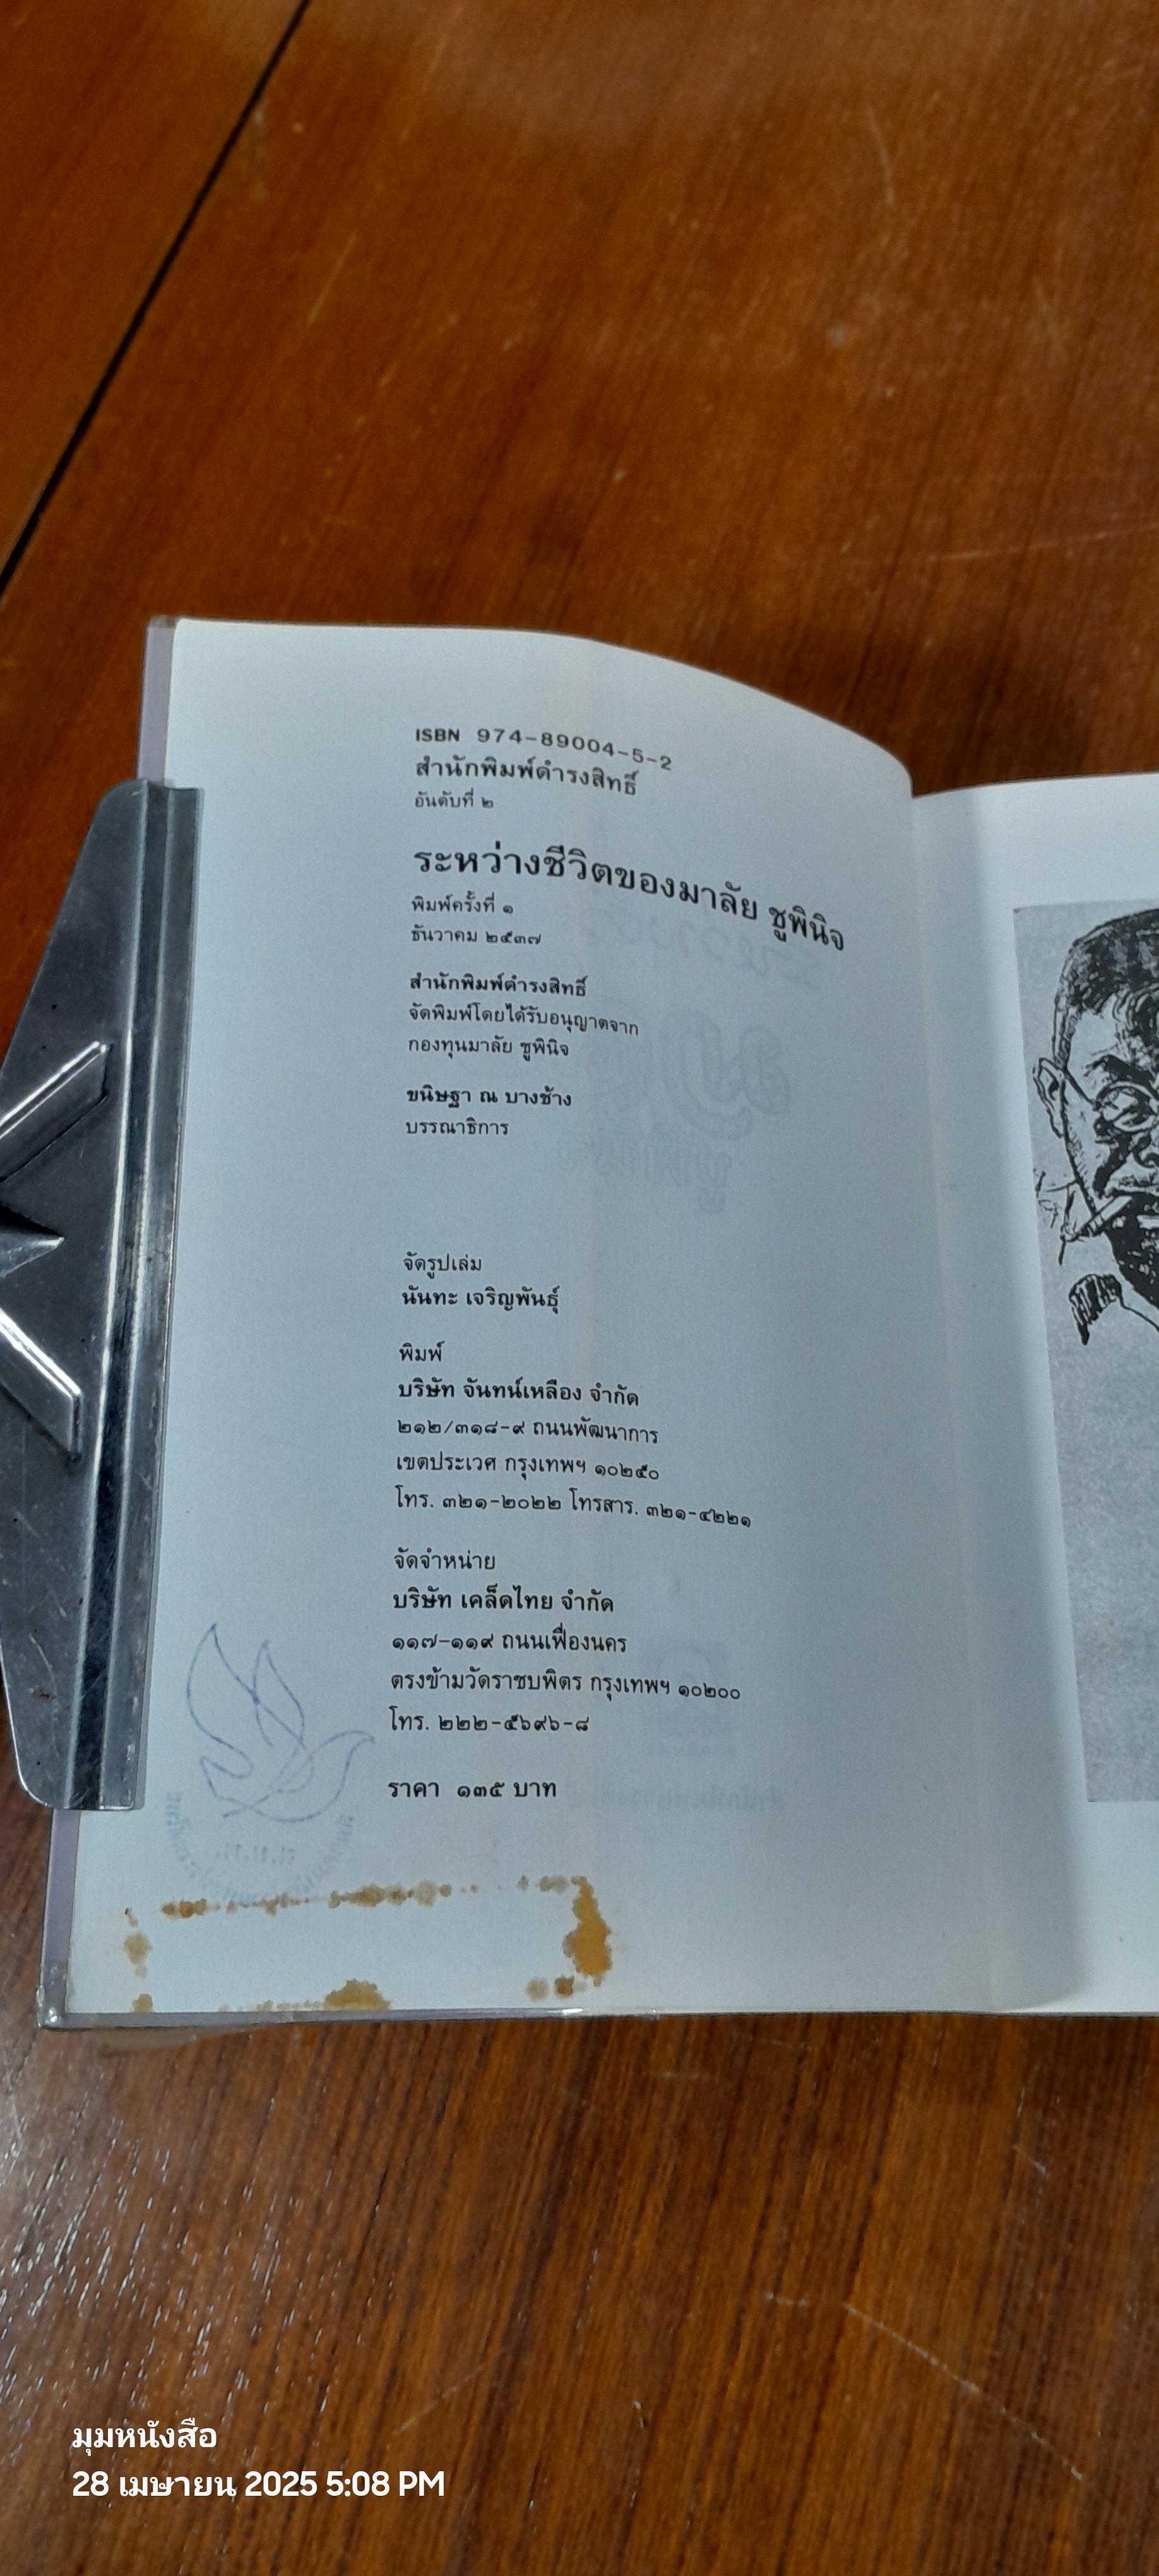 ISBN 974-89004-5-2
สำนักพิมพ์ดำรงสิทธิ์
อันดับที่ ๒
ระหว่างชีวิตของมาลัย ชูพินิจ
พิมพ์ครั้งที่ ๑
ธันวาคม ๒๕๓๗
สำนักพิมพ์ดำรงสิทธิ์
จัดพิมพ์โดยได้รับอนุญาตจาก
กองทุนมาลัย ชูพินิจ
ขนิษฐา ณ บางช้าง
บรรณาธิการ
จัดรูปเล่ม
นันทะ เจริญพันธุ์
พิมพ์
บริษัท จันทน์เหลือง จำกัด
๒๑๒/๓๑๘-๙ ถนนพัฒนาการ
เขตประเวศ กรุงเทพฯ ๑๐๒๕๐
โทร. ๓๒๑-๒๐๒๒ โทรสาร. ๓๒๑-๔๒๒๑
จัดจำหน่าย
บริษัท เคล็ดไทย จำกัด
๑๑๗-๑๑๙ ถนนเฟื่องนคร
ตรงข้ามวัดราชบพิตร กรุงเทพฯ ๑๐๒๐๐
โทร. ๒๒๒-๕๖๙๖-๘
ราคา ๑๓๕ บาท
มุมหนังสือ
28 เมษายน 2025 5:08 PM